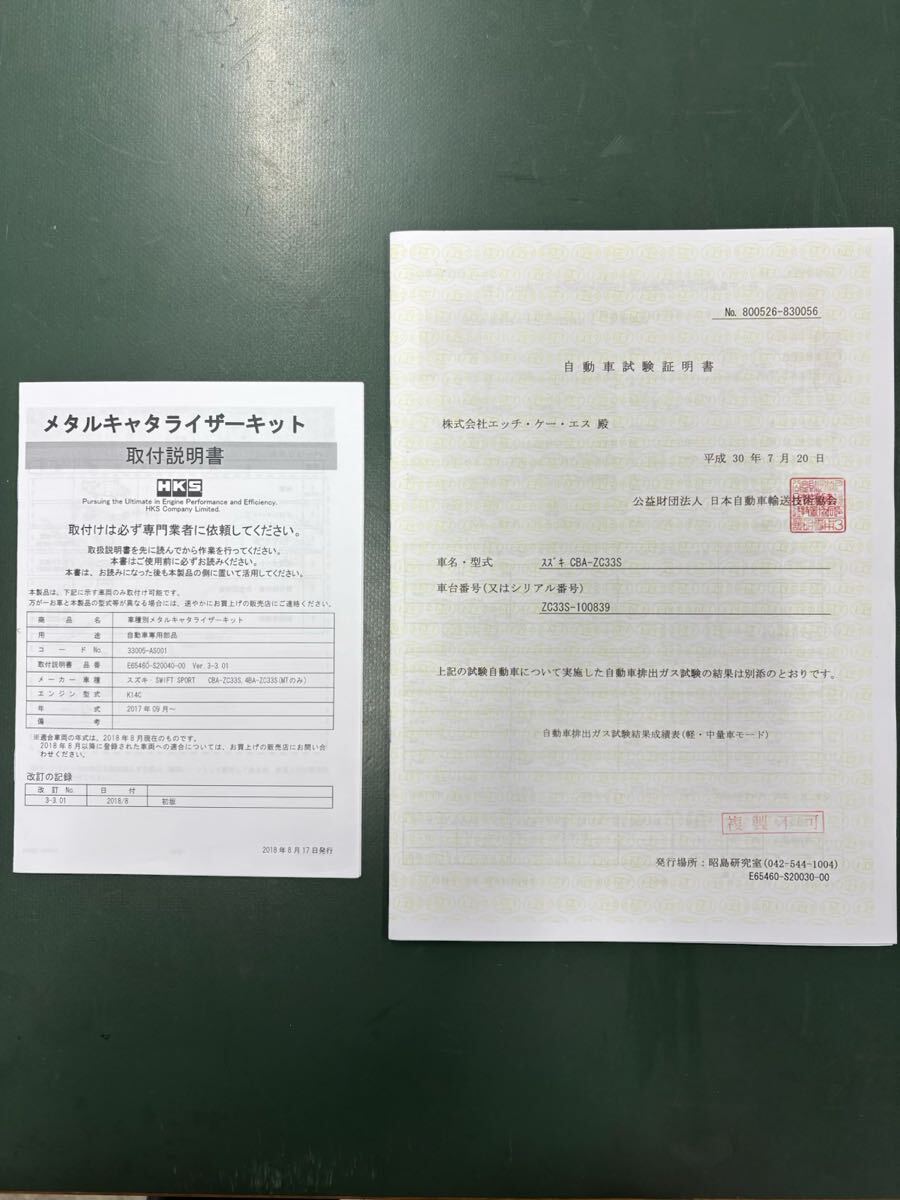 メタルキャタライザーキット
取付説明書
HKS
Pursuing the Ultimate in Engine Performance and Efficiency.
HKS Company Limited.
取付けは必ず専門業者に依頼してください。
取扱説明書を先に読んでから作業を行ってください。
本書はご使用前に必ずお読みください。
本書は、お読みになった後も本製品の側に置いて活用してください。
本製品は、下記に示す車両のみ取付け可能です。
万が一お車と本製品の型式等が異なる場合には、速やかにお買上げの販売店にご連絡ください。
商品名 車種別メタルキャタライザーキット
用途 自動車専用部品
コードNo. 33005-AS001
取付説明書品番 E65460-S20040-00 Ver.3-3.01
メーカー車種 スズキ SWIFT SPORT CBA-ZC33S,4BA-ZC33S(MTのみ)
エンジン型式 K14C
年式 2017年09月～
備考
※適合車両の年式は、2018年8月現在のものです。
2018年8月以降に登録された車両への適合については、お買上げの販売店にお問い合
わせください。
改訂の記録
改訂No. 日付
3-3.01 2018/8 初版
2018年8月17日発行
No. 800526-830056
自動車試験証明書
株式会社エッチ・ケー・エス 殿
平成 30年 7月 20日
公益財団法人 日本自動車輸送技術協会
車名・型式 スズキ CBA-ZC33S
車台番号(又はシリアル番号)
ZC33S-100839
上記の試験自動車について実施した自動車排出ガス試験の結果は別添のとおりです。
自動車排出ガス試験結果成績表(軽・中量車モード)
複製不可
発行場所：昭島研究室(042-544-1004)
E65460-S20030-00